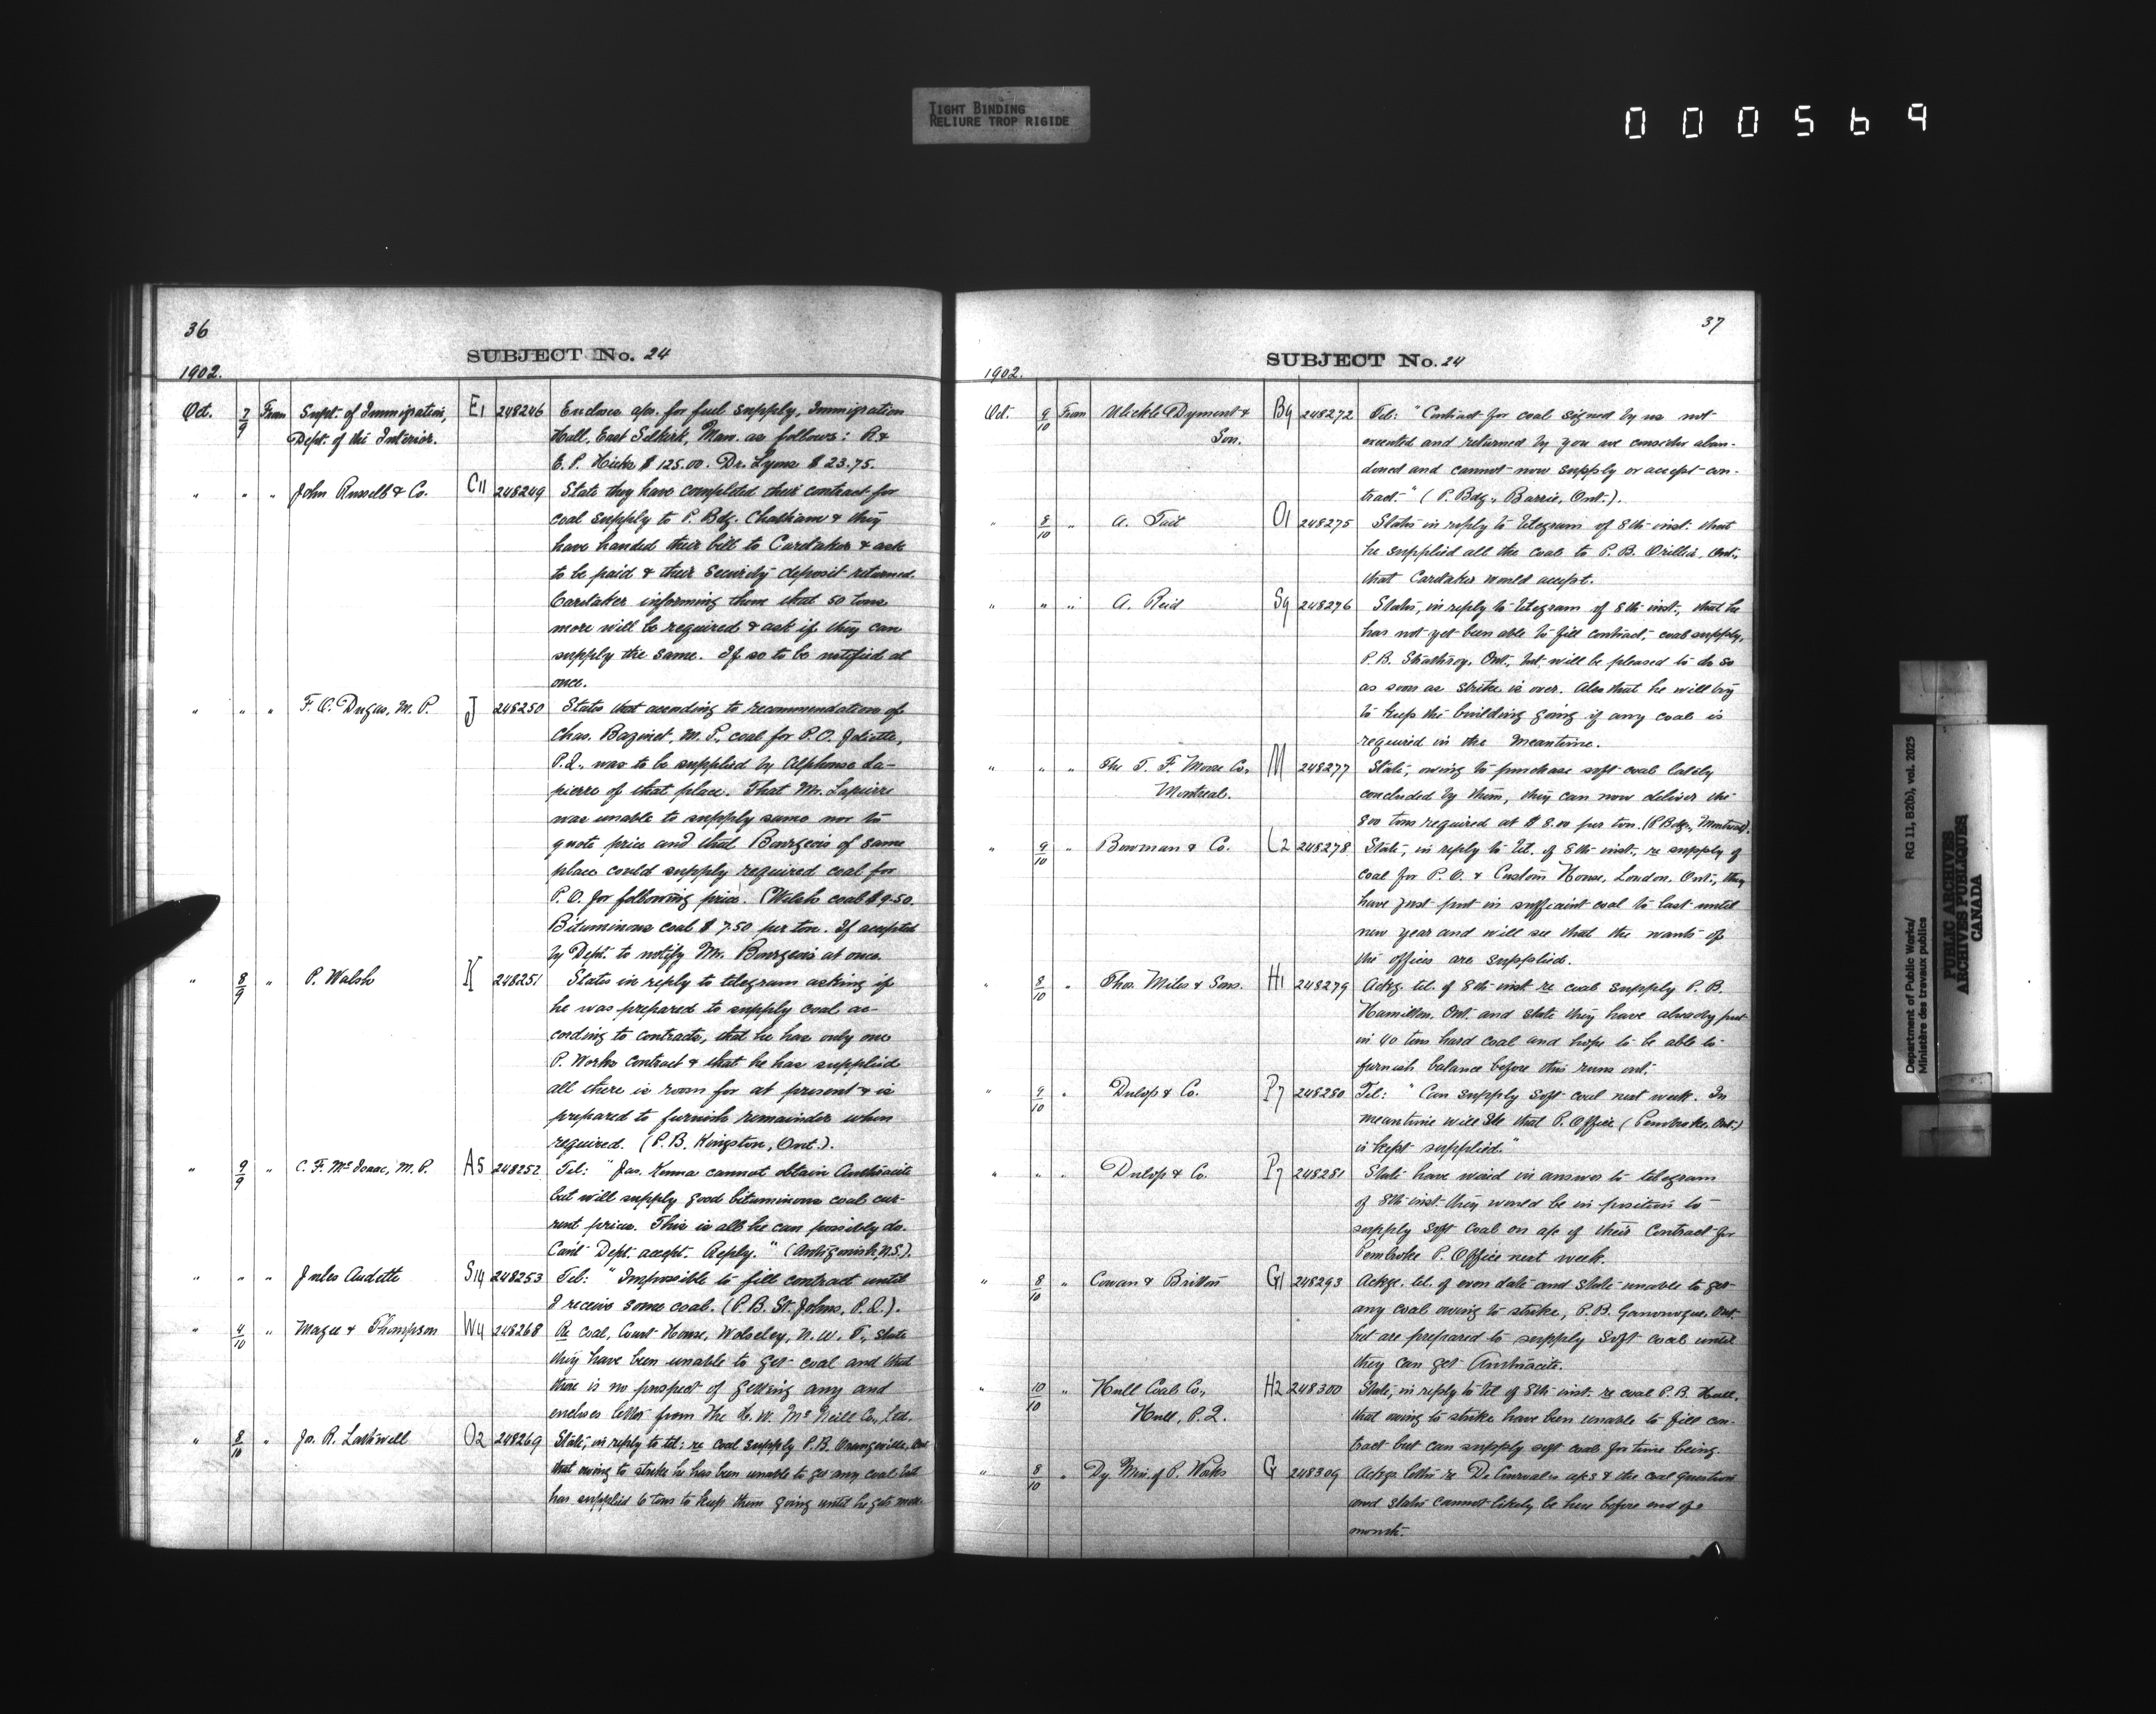 TIGHT BINDING
RELIURE TROP RIGIDE
000569
36
SUBJECT No. 24
1902.
Oct. 7/9 From Supt. of Immigration, E1 248246 Encloses aps. for fuel supply, Immigration
Dept. of the Interior. Hall, East Selkirk, Man. as follows: R &
E. P. Hicks $125.00. Dr. Lyons $23.75.
" " " John Russell & Co. C11 248249 State they have completed their contract for
coal supply to P. Bdg. Chatham & they
have handed their bill to Caretaker & ask
to be paid & their Security deposit returned.
Caretaker informing them that 50 tons
more will be required & ask if they can
supply the same. If so to be notified at
once.
" " " F. O. Dugas, M. P. J 248250 States that according to recommendation of
Chas. Bazinet, M. P., coal for P.O. Joliette,
P.Q., was to be supplied by Alphonse La-
pierre of that place. That Mr. Lapierre
was unable to supply same nor to
quote price and that Bourgeois of same
place could supply required coal for
P.O. for following price. (Welsh coal $9.50.
Bituminous coal $7.50 per ton. If accepted
by Dept. to notify Mr. Bourgeois at once.
" 8/9 " P. Walsh K 248251 States in reply to telegram asking if
he was prepared to supply coal ac-
cording to contracts, that he has only one
P. Works contract & that he has supplied
all there is room for at present & is
prepared to furnish remainder when
required. (P. B. Kingston, Ont.).
" 9/9 " C. F. McIsaac, M. P. A5 248252 Tel: "Jas. Kenna cannot obtain Anthracite
but will supply good bituminous coal cur-
rent prices. This is all he can possibly do.
Can't Dept. accept. Reply." (Antigonish, N.S.).
" " " Jules Audette S14 248253 Tel: "Impossible to fill contract until
I receive some coal. (P. B. St. Johns, P.Q.).
" 4/10 " Magee & Thompson W4 248268 Re coal, Court House, Wolseley, N. W. T., state
they have been unable to get coal and that
there is no prospect of getting any and
encloses letter from The H. W. McNeill Co., Ltd.
" 8/10 " Jo. R. Lathwell O2 248269 State, in reply to tel: re coal supply P. B. Orangeville, Ont
that owing to strike he has been unable to get any coal but
has supplied 6 tons to keep them going until he gets more.
37
SUBJECT No. 24
1902.
Oct. 9/10 From Dyment & B9 248272 Tel: "Contract for coal signed by us not
Son. executed and returned by you we consider aban-
doned and cannot now supply or accept con-
tract." (P. Bdg., Barrie, Ont.).
" 8/10 " A. Tait O1 248275 States in reply to telegram of 8th inst. that
he supplied all the coal to P. B. Orillia, Ont.
that Caretaker would accept.
" " " A. Reid S9 248276 States, in reply to telegram of 8th inst., that he
has not yet been able to fill contract, coal supply,
P. B. Strathroy, Ont., but will be pleased to do so
as soon as strike is over. Also that he will try
to keep the building going if any coal is
required in the meantime.
" " " The T. F. Moore Co., M 248277 State, owing to purchase soft coal lately
Montreal. concluded by them, they can now deliver the
800 tons required at $8.00 per ton. (P. Bdgs., Montreal).
" 9/10 " Bowman & Co. L2 248278 State, in reply to tel. of 8th inst., re supply of
coal for P. O. & Custom House, London, Ont., they
have just put in sufficient coal to last until
new year and will see that the wants of
the offices are supplied.
" 8/10 " Thos. Miles & Sons. H1 248279 Ackg. tel. of 8th inst re coal supply P. B.
Hamilton, Ont. and state they have already put
in 40 tons hard coal and hope to be able to
furnish balance before this runs out.
" 9/10 " Dunlop & Co. P7 248280 Tel: "Can supply Soft coal next week. In
meantime will see that P. Office (Pembroke, Ont.)
is kept supplied."
" " " Dunlop & Co. P7 248281 State have wired in answer to telegram
of 8th inst. they would be in position to
supply soft coal on a/c of their contract for
Pembroke P. Office next week.
" 8/10 " Cowan & Britton G1 248293 Ackge. tel. of even date and state unable to get
any coal owing to strike, P. B. Gananoque, Ont.
but are prepared to supply soft coal until
they can get Anthracite.
" 10/10 " Hull Coal Co., H2 248300 State, in reply to tel of 8th inst. re coal P. B. Hull,
Hull, P.Q. that owing to strike have been unable to fill con-
tract but can supply soft coal for time being.
" 8/10 " Dy. Min. of P. Works G 248309 Ackgs. letter re De Courval's aps & the coal question
and states cannot likely be here before end of
month.
Department of Public Works/
Ministère des travaux publics
RG 11, B2(b), vol. 2025
PUBLIC ARCHIVES
ARCHIVES PUBLIQUES
CANADA